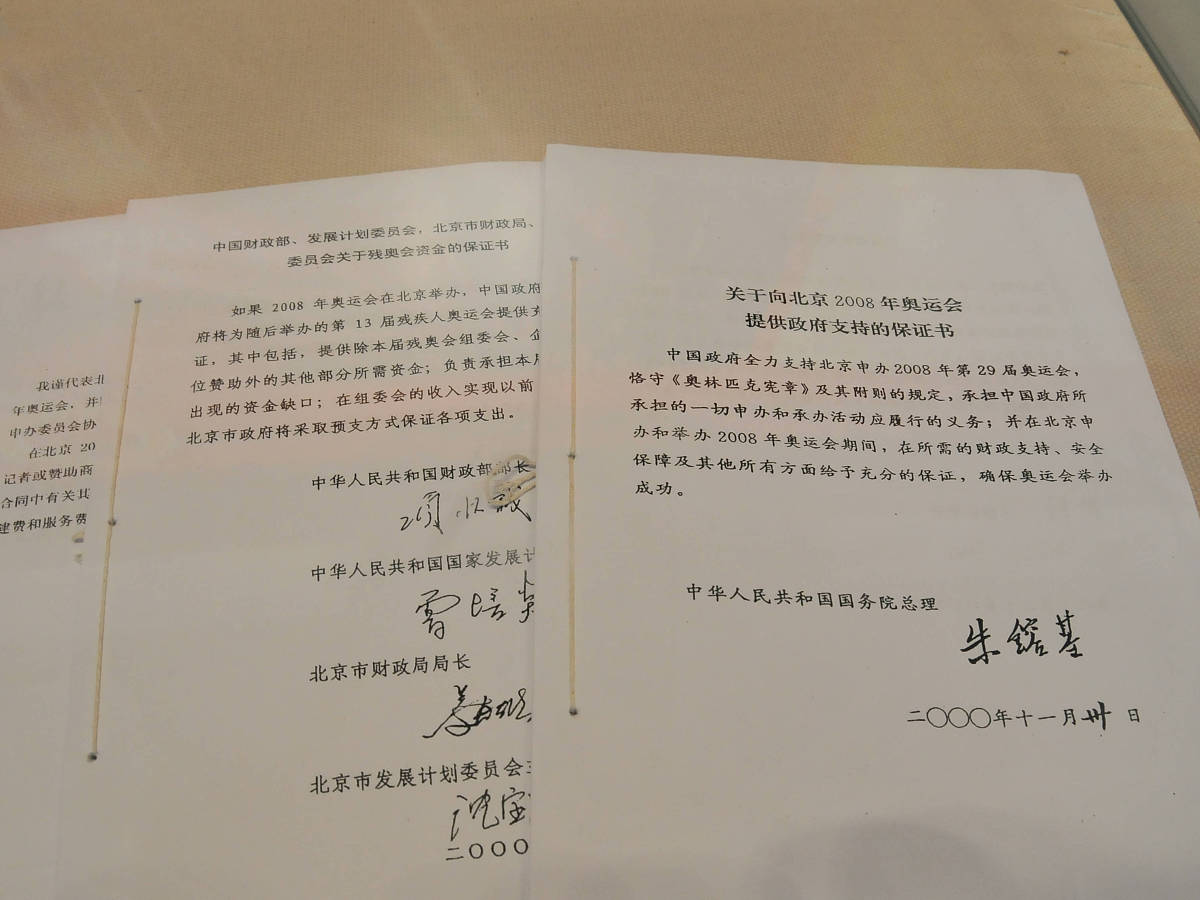 我谨代表北
年奥运会，并
申办委员会协
在北京 20
记者或赞助商
合同中有关其
建费和服务费
中国财政部、发展计划委员会，北京市财政局、
委员会关于残奥会资金的保证书
如果 2008 年奥运会在北京举办，中国政府
府将为随后举办的第 13 届残疾人奥运会提供充
证，其中包括，提供除本届残奥会组委会、企
位赞助外的其他部分所需资金；负责承担本届
出现的资金缺口；在组委会的收入实现以前
北京市政府将采取预支方式保证各项支出。
中华人民共和国财政部部长
项怀诚
中华人民共和国国家发展计
曾培炎
北京市财政局局长
北京市发展计划委员会主
沈宝
二〇〇〇
关于向北京 2008 年奥运会
提供政府支持的保证书
中国政府全力支持北京申办 2008 年第 29 届奥运会，
恪守《奥林匹克宪章》及其附则的规定，承担中国政府所
承担的一切申办和承办活动应履行的义务；并在北京申
办和举办 2008 年奥运会期间，在所需的财政支持、安全
保障及其他所有方面给予充分的保证，确保奥运会举办
成功。
中华人民共和国国务院总理
朱镕基
二〇〇〇年十一月卅日